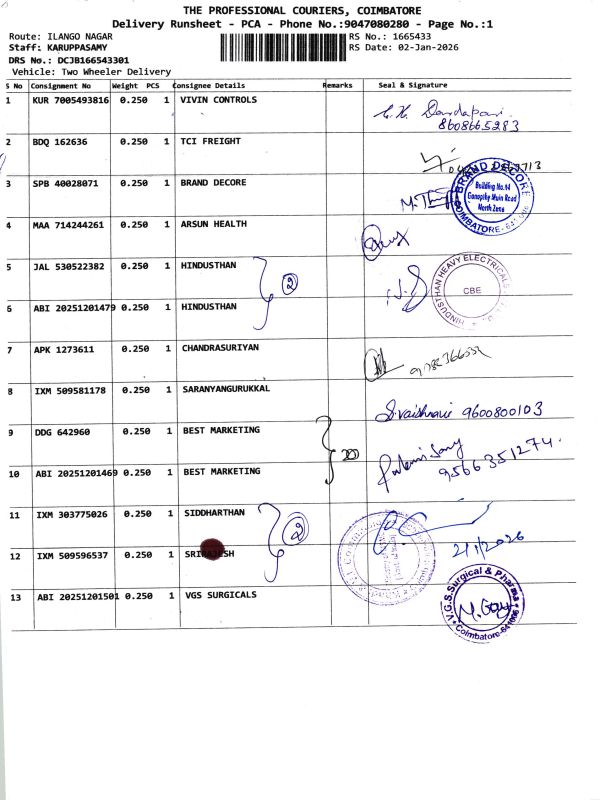 THE PROFESSIONAL COURIERS, COIMBATORE
Delivery Runsheet - PCA - Phone No.:9047080280 - Page No.:1
Route: ILANGO NAGAR RS No.: 1665433
Staff: KARUPPASAMY RS Date: 02-Jan-2026
DRS No.: DCJB166543301
Vehicle: Two Wheeler Delivery
S No Consignment No Weight PCS Consignee Details Remarks Seal & Signature
1 KUR 7005493816 0.250 1 VIVIN CONTROLS
8608665283
2 BDQ 162636 0.250 1 TCI FREIGHT
3 SPB 40028071 0.250 1 BRAND DECORE
BRAND DECORE
Building No.44
Ganapthy Main Road
North Zone
COIMBATORE- 641 006
4 MAA 714244261 0.250 1 ARSUN HEALTH
5 JAL 530522382 0.250 1 HINDUSTHAN
2
HINDUSTHAN HEAVY ELECTRICALS
CBE
6 ABI 20251201479 0.250 1 HINDUSTHAN
7 APK 1273611 0.250 1 CHANDRASURIYAN
8 IXM 509581178 0.250 1 SARANYANGURUKKAL
S.vaishnavi 9600800103
9 DDG 642960 0.250 1 BEST MARKETING
9566351274.
10 ABI 20251201469 0.250 1 BEST MARKETING
11 IXM 303775026 0.250 1 SIDDHARTHAN
2
2/1/2026
12 IXM 509596537 0.250 1 SRIRAJESH
13 ABI 20251201501 0.250 1 VGS SURGICALS
V.G.S.Surgical & Pharma
Coimbatore-641006